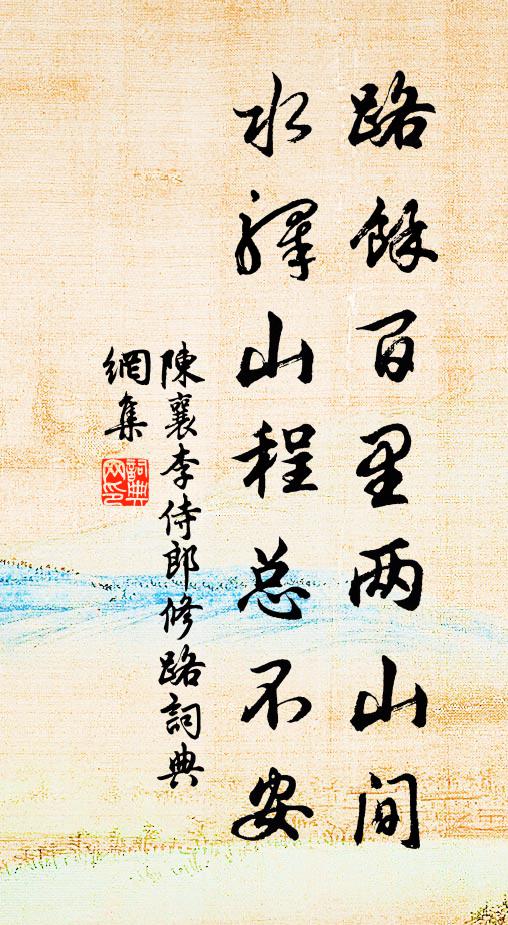 路餘百里两山间
水驿山程总不安
陳襄李侍郎修路詞典
網集
詞典
网印